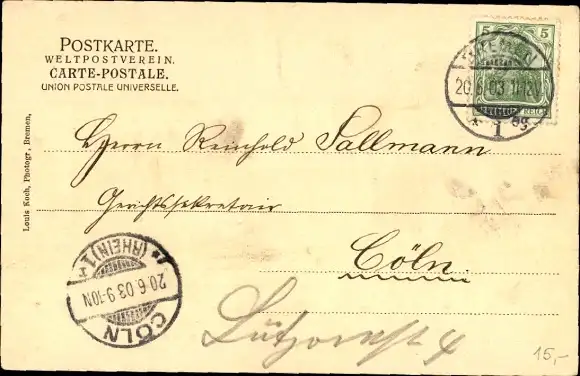 POSTKARTE.
WELTPOSTVEREIN.
CARTE-POSTALE.
UNION POSTALE UNIVERSELLE.
5 5
REICH
BREMEN
20.6.03.11-12V
* 1 *
Herrn Reinhold Sallmann
Gerichtssekretair
Cöln
Lützowst 4
(RHEIN) 1
20.6.03.9-10N
CÖLN
Louis Koch, Photogr., Bremen,
15,-